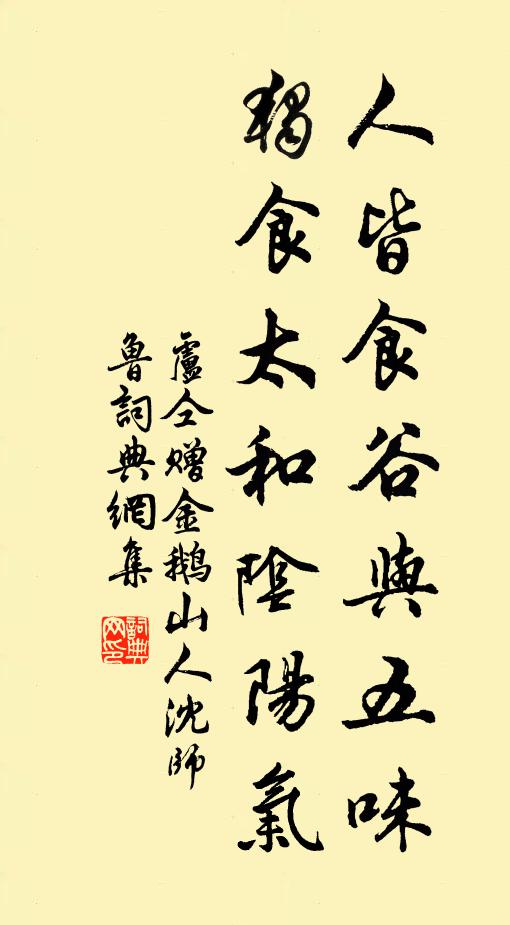 人皆食谷與五味
獨食太和陰陽氣
盧仝贈金鵝山人沈師
魯詞典網集
詞典网印